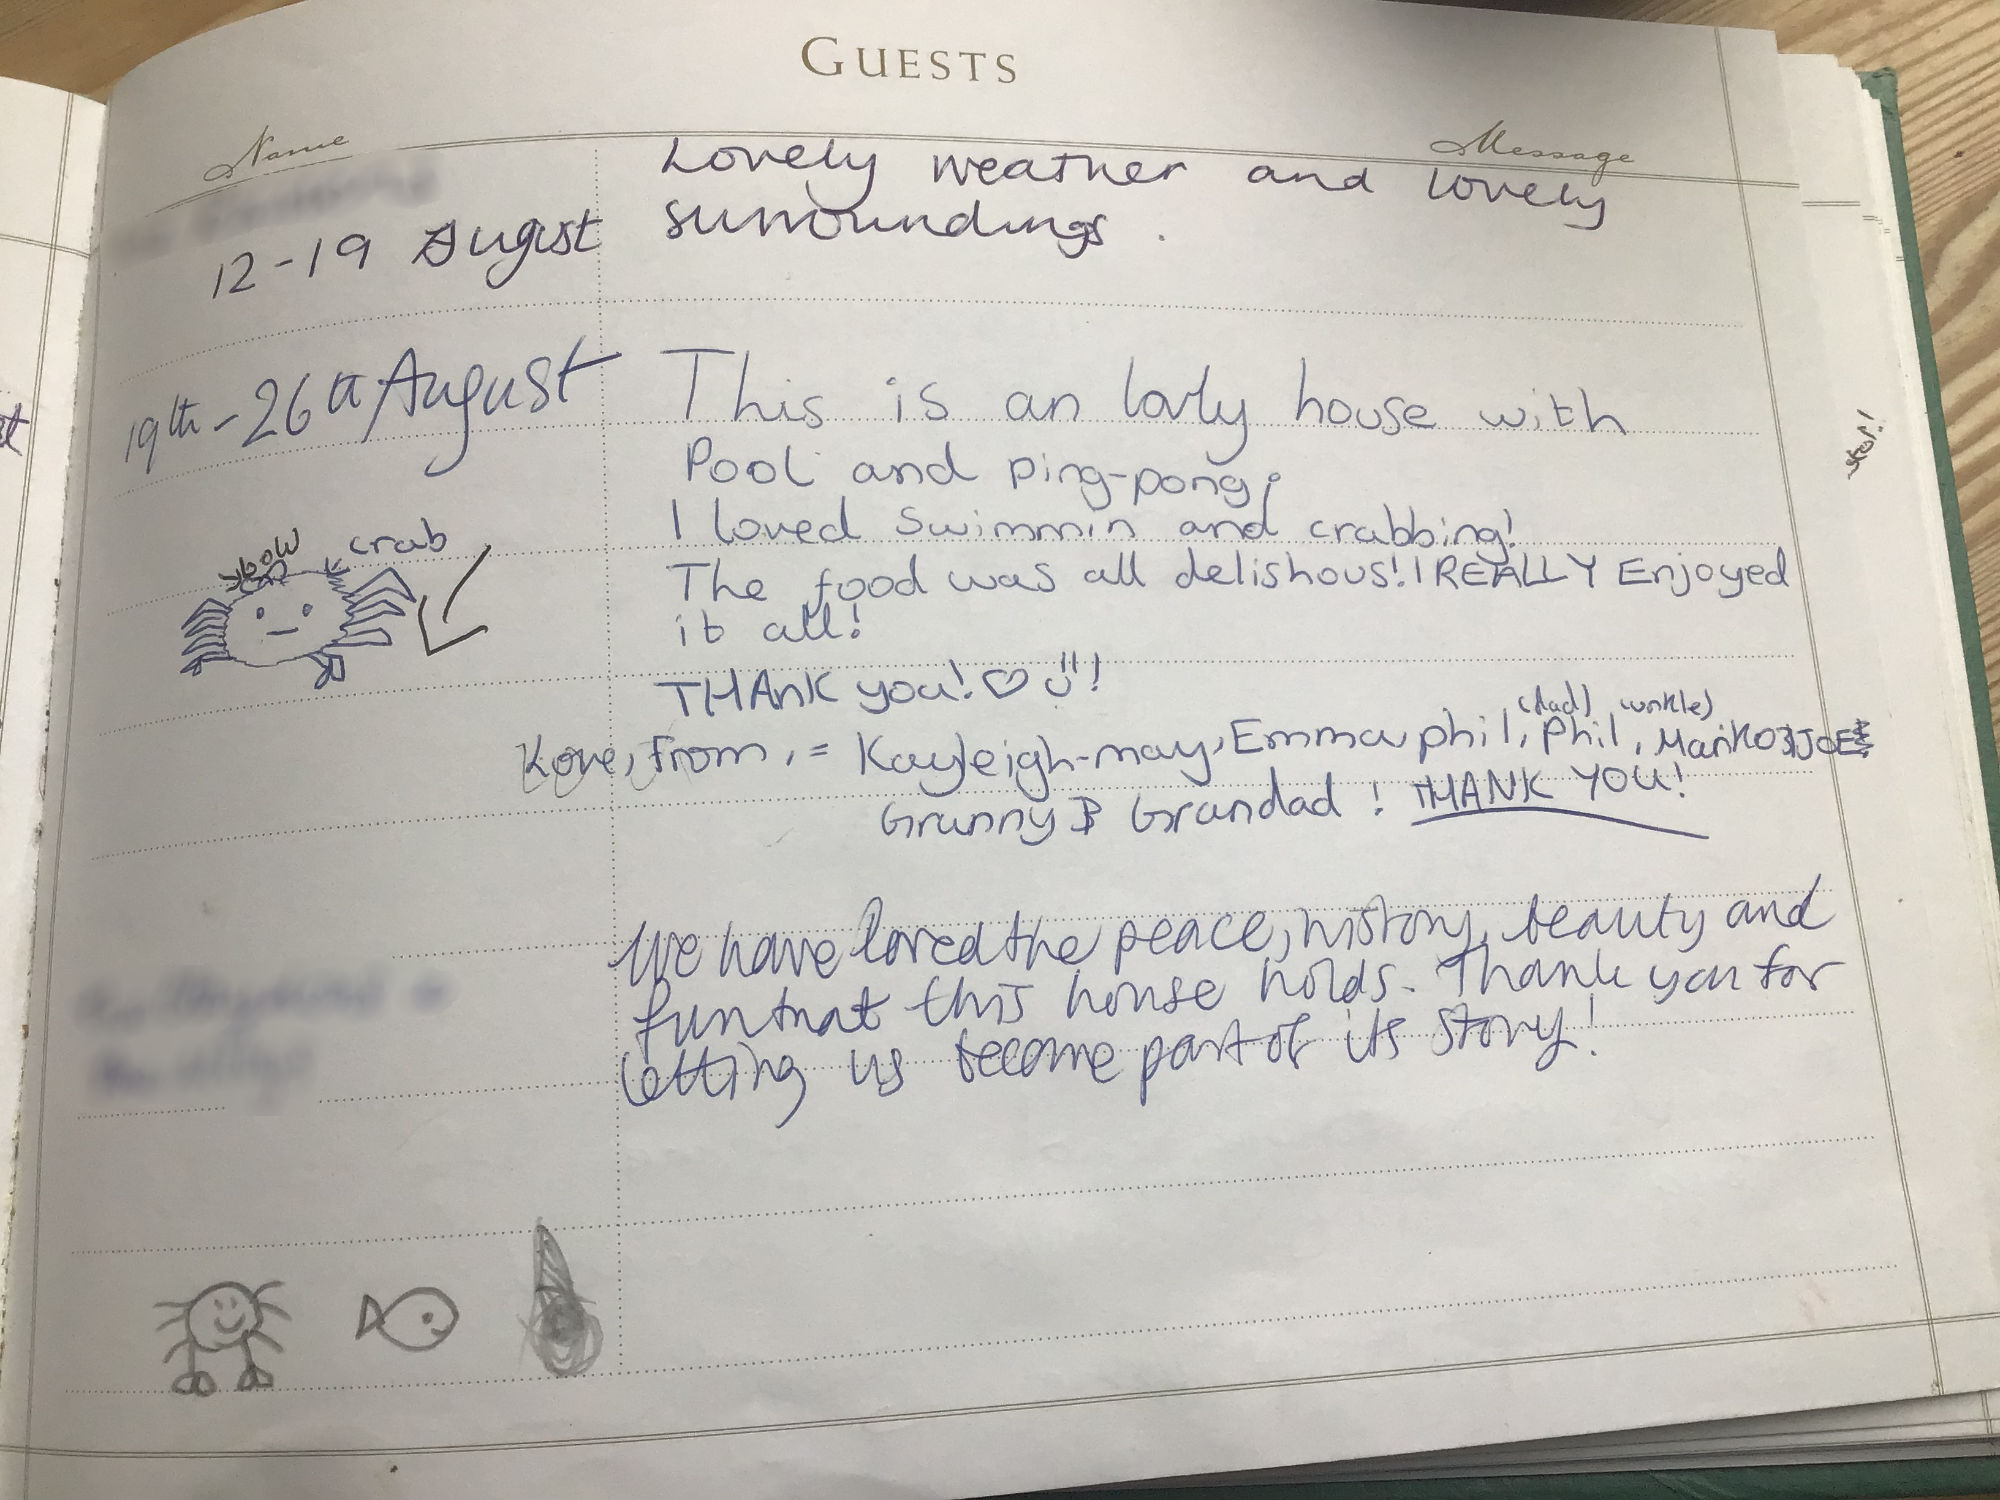 GUESTS
Name
Message
Lovely weather and lovely
surroundings.
12-19 August
19th-26th August
This is an lovly house with
Pool and ping-pong!
I loved Swimmin and crabbing!
The food was all delishous! I REALLY Enjoyed
it all!
THAnK you! ♡ !
bow
crab
(dad) (unkle)
Love, From, = Kayleigh-may, Emma phil, Phil,
Granny & Grandad ! THANK YOU!
We have loved the peace, history, beauty and
fun that this house holds. Thank you for
letting us become part of its story!